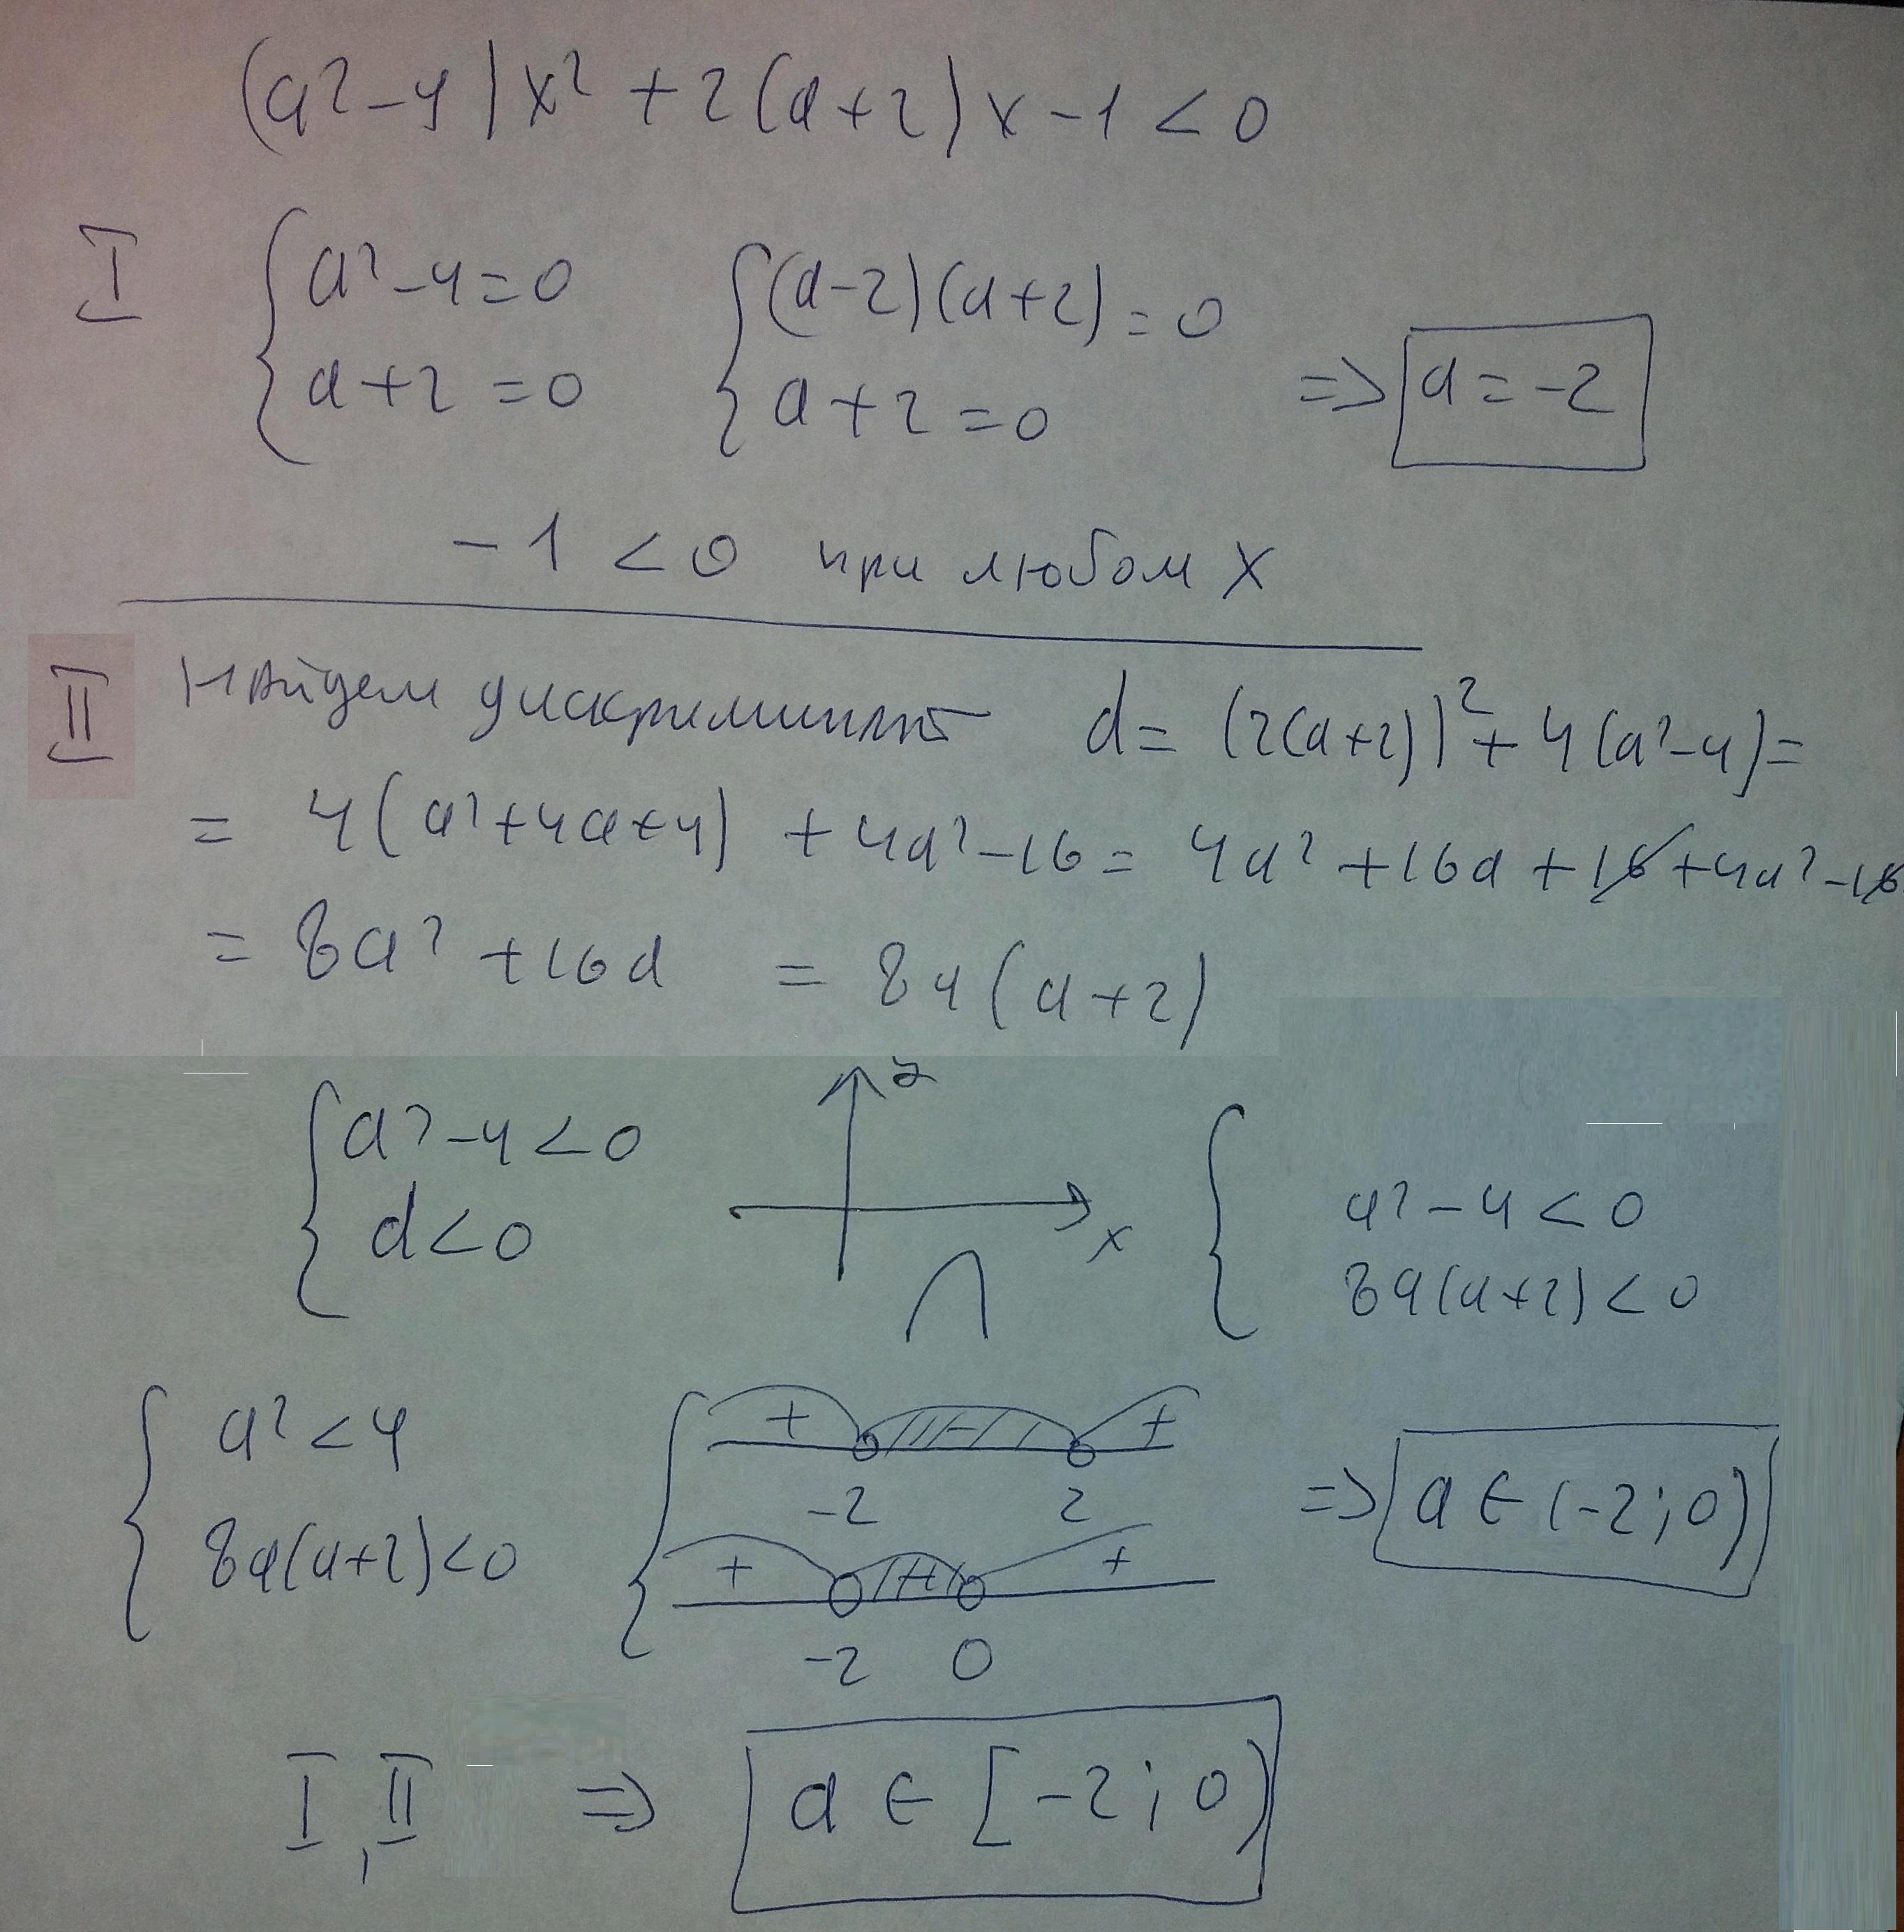 (a²-4)x²+2(a+2)x-1<0
I { a²-4=0 { (a-2)(a+2)=0
a+2=0 a+2=0 => a=-2
-1<0 при любом x
II Найдем дискриминант d=(2(a+2))²+4(a²-4)=
= 4(a²+4a+4)+4a²-16= 4a²+16a+16+4a²-16
= 8a²+16a = 8a(a+2)
{ a²-4<0 y { a²-4<0
d<0 x 8a(a+2)<0
{ a²<4 { + - +
-2 2 => a∈(-2;0)
8a(a+2)<0 + - +
-2 0
I, II => a∈[-2;0)